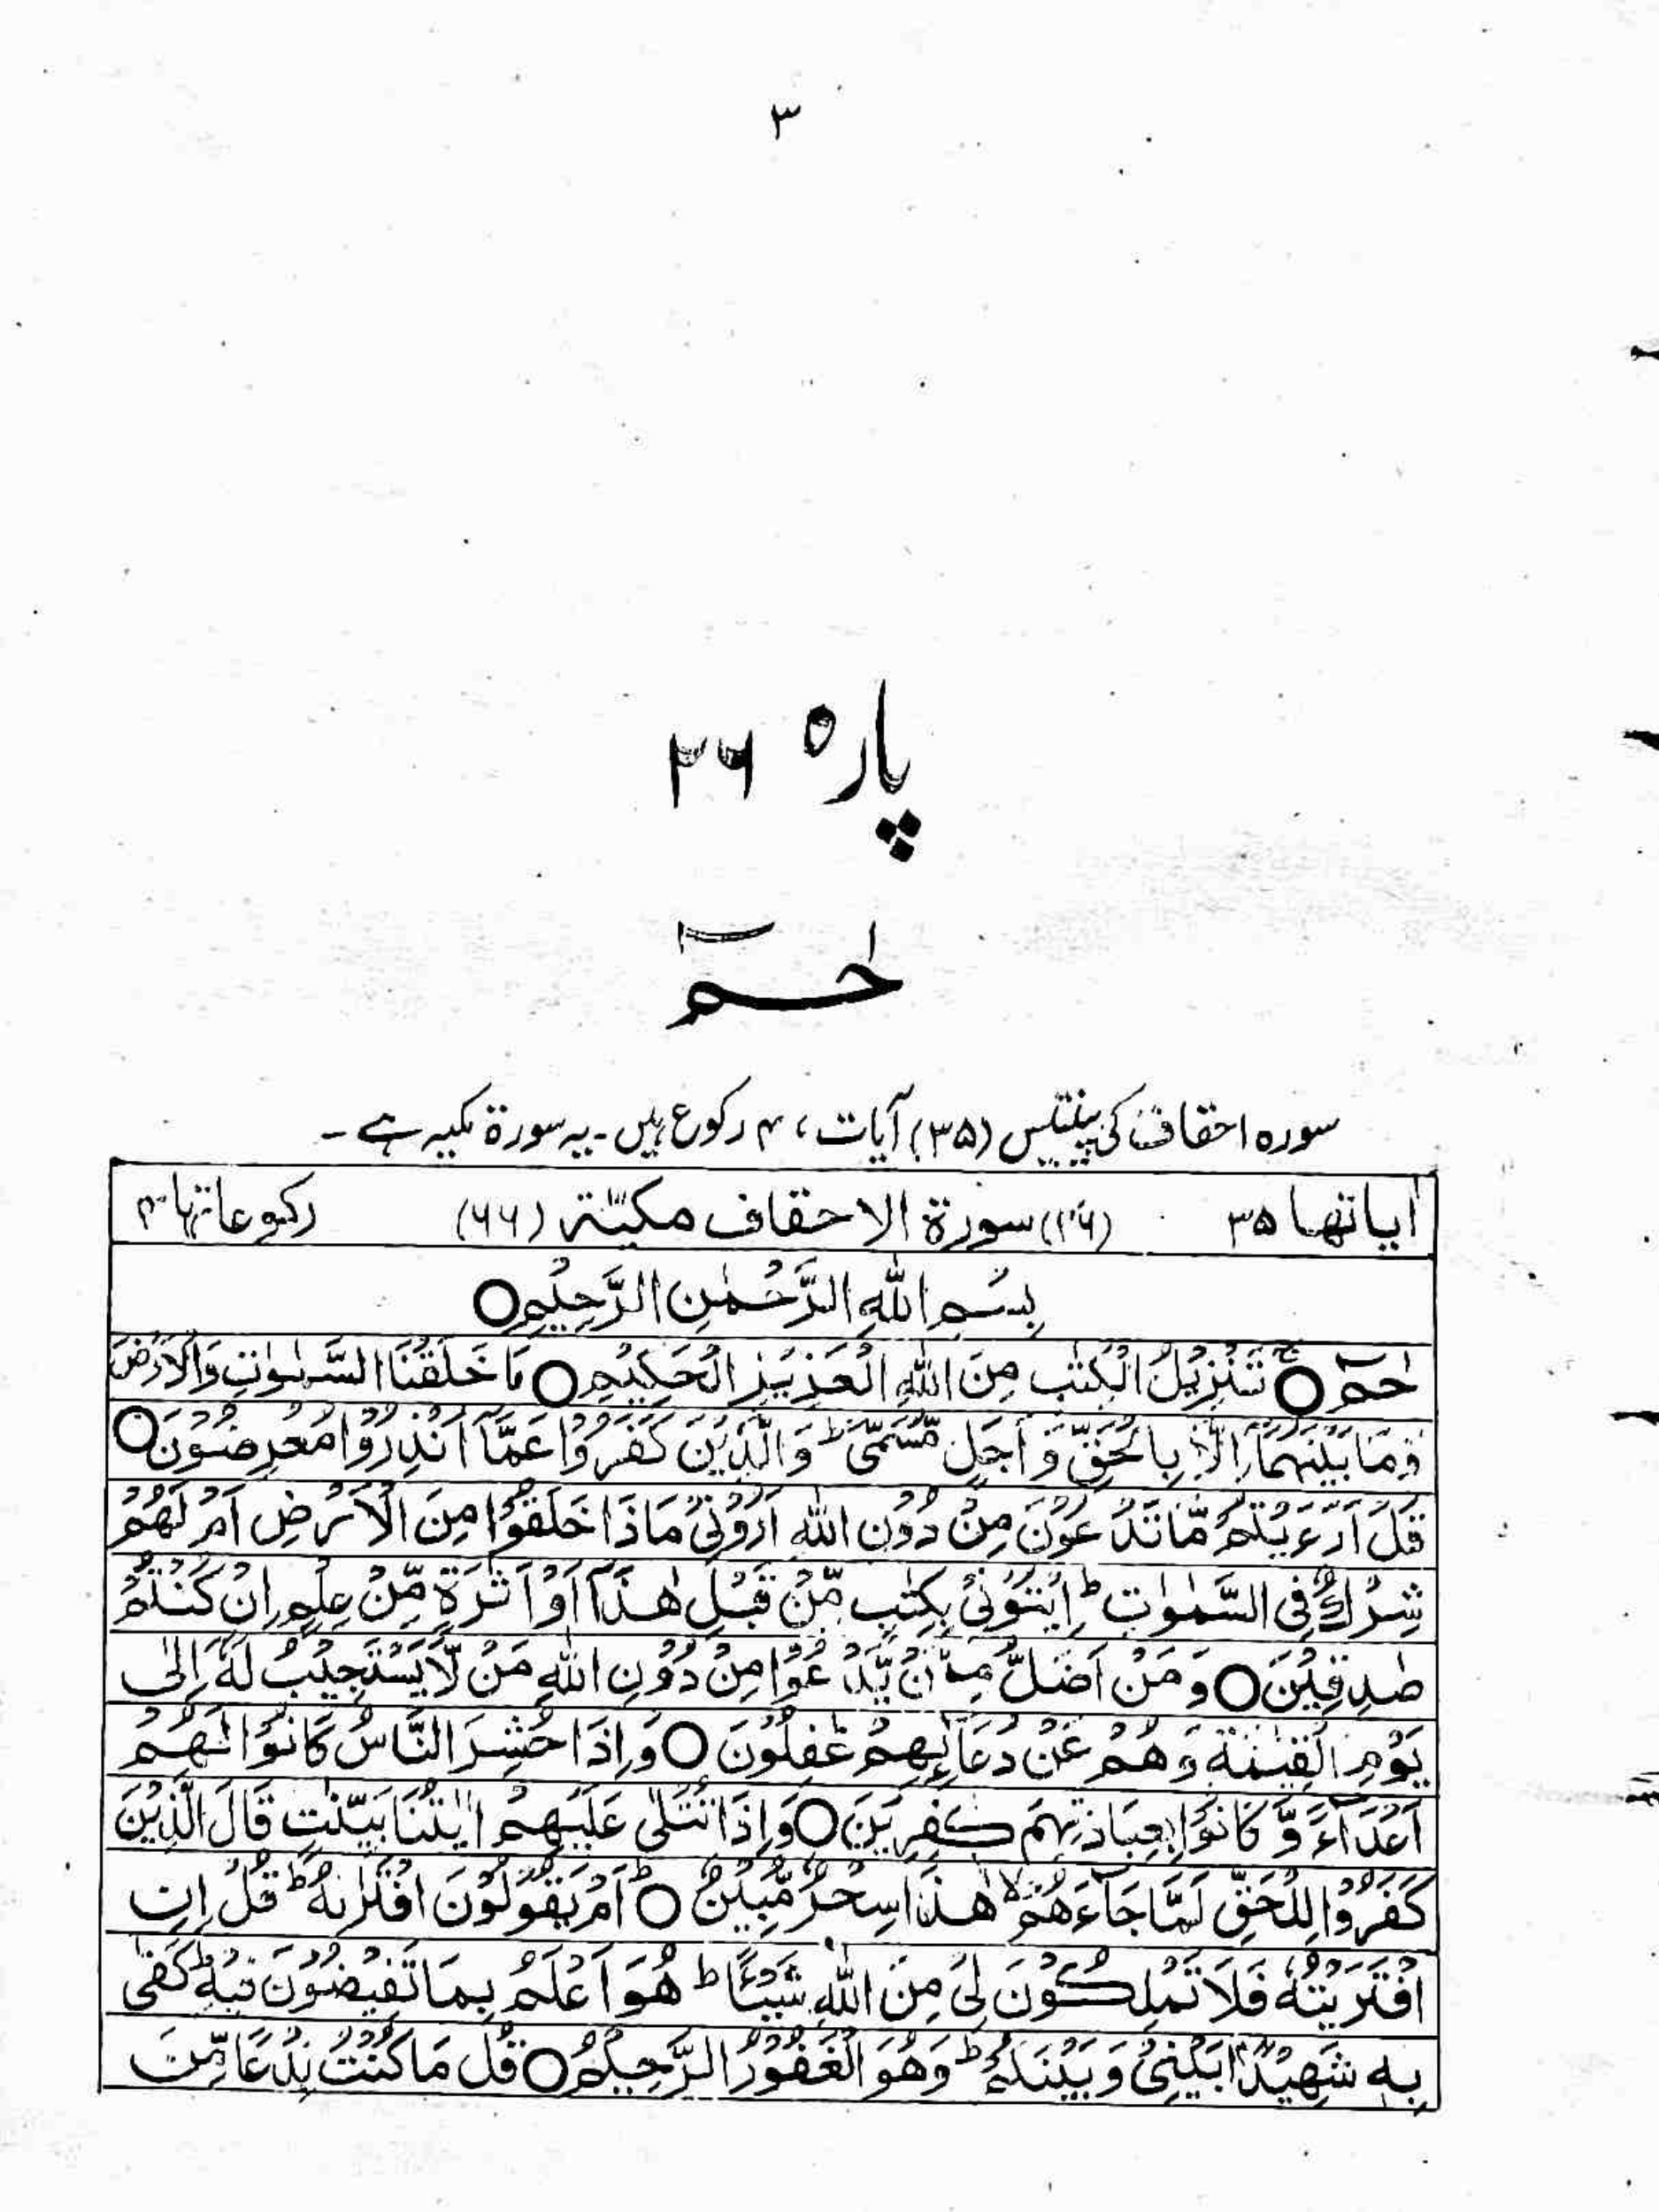 ۳
پارہ ۲۶
حٰمٓ
سورہ احقاف کی پینتیس (۳۵) آیات، ۴ رکوع ہیں۔ یہ سورۃ مکیہ ہے۔
ایاتھا ۳۵ (۴۶) سورۃ الاحقاف مکیّۃ (۶۶) رکوعاتہا ۴
بِسْمِ اللّٰهِ الرَّحْمٰنِ الرَّحِيْمِ○
حٰمٓ ○ۚ تَنْزِيْلُ الْكِتٰبِ مِنَ اللّٰهِ الْعَزِيْزِ الْحَكِيْمِ○ مَا خَلَقْنَا السَّمٰوٰتِ وَالْاَرْضَ
وَمَا بَيْنَهُمَآ اِلَّا بِالْحَقِّ وَ اَجَلٍ مُّسَمًّىؕ وَالَّذِيْنَ كَفَرُوْا عَمَّآ اُنْذِرُوْا مُعْرِضُوْنَ○
قُلْ اَرَءَيْتُمْ مَّا تَدْعُوْنَ مِنْ دُوْنِ اللّٰهِ اَرُوْنِيْ مَاذَا خَلَقُوْا مِنَ الْاَرْضِ اَمْ لَهُمْ
شِرْكٌ فِى السَّمٰوٰتِؕ اِيْتُوْنِيْ بِكِتٰبٍ مِّنْ قَبْلِ هٰذَآ اَوْ اَثٰرَةٍ مِّنْ عِلْمٍ اِنْ كُنْتُمْ
صٰدِقِيْنَ○ وَمَنْ اَضَلُّ مِمَّنْ يَّدْعُوْا مِنْ دُوْنِ اللّٰهِ مَنْ لَّا يَسْتَجِيْبُ لَهٗٓ اِلٰى
يَوْمِ الْقِيٰمَةِ وَهُمْ عَنْ دُعَآئِهِمْ غٰفِلُوْنَ○ وَاِذَا حُشِرَ النَّاسُ كَانُوْا لَهُمْ
اَعْدَآءً وَّكَانُوْا بِعِبَادَتِهِمْ كٰفِرِيْنَ○ وَاِذَا تُتْلٰى عَلَيْهِمْ اٰيٰتُنَا بَيِّنٰتٍ قَالَ الَّذِيْنَ
كَفَرُوْا لِلْحَقِّ لَمَّا جَآءَهُمْۙ هٰذَا سِحْرٌ مُّبِيْنٌ○ؕ اَمْ يَقُوْلُوْنَ افْتَرٰىهُؕ قُلْ اِنِ
افْتَرَيْتُهٗ فَلَا تَمْلِكُوْنَ لِيْ مِنَ اللّٰهِ شَيْئًاؕ هُوَ اَعْلَمُ بِمَا تُفِيْضُوْنَ فِيْهِؕ كَفٰى
بِهٖ شَهِيْدًاۢ بَيْنِيْ وَبَيْنَكُمْؕ وَهُوَ الْغَفُوْرُ الرَّحِيْمُ○ قُلْ مَا كُنْتُ بِدْعًا مِّنَ